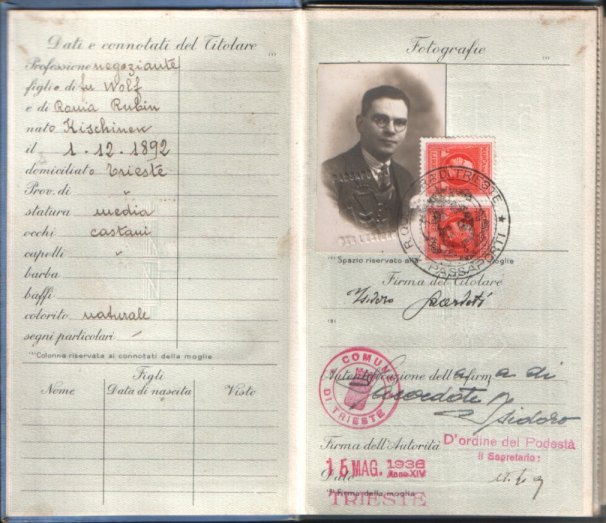 Dati e connotati del Titolare
Professione negoziante
figlio di fu Wolf
e di Rania Rubin
nato Kischinew
il 1.12.1892
domiciliato Trieste
Prov. di "
statura media
occhi castani
capelli "
barba
baffi
colorito naturale
segni particolari /
Colonna riservata ai connotati della moglie.
Figli
Nome Data di nascita Visto
Fotografie
R. QUESTURA DI TRIESTE
PASSAPORTI
Spazio riservato alla moglie
Firma del Titolare
Isidoro
COMUNE DI TRIESTE
Autenticazione della firma di
Sacerdoti Isidoro
Firma dell'Autorità D'ordine del Podestà
Il Segretario:
15 MAG. 1936
Anno XIV
Data
Firma della moglie
TRIESTE